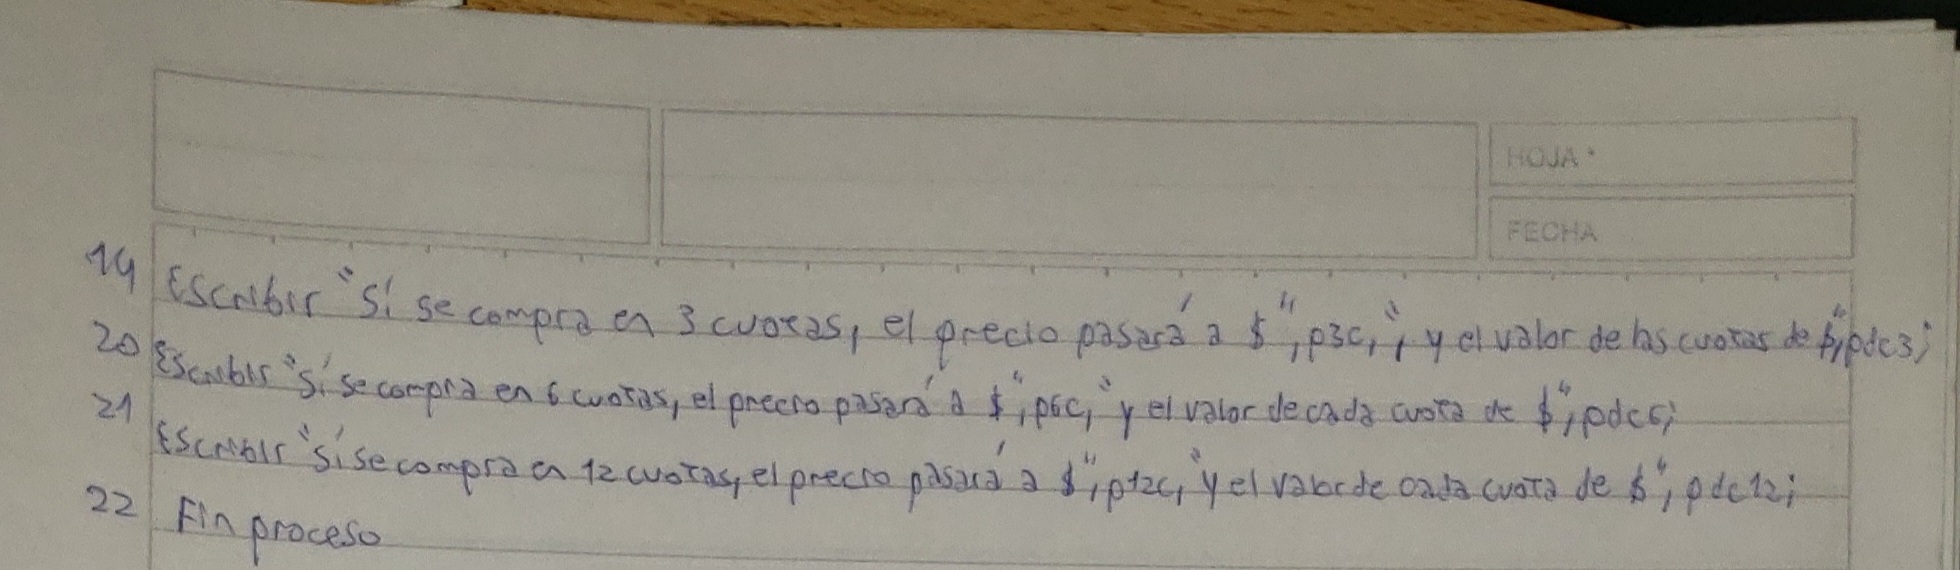 HOJA
FECHA
19 Escribir "Sí se compra en 3 cuotas, el precio pasará a $", p3c, ", y el valor de las cuotas de $", pdc3;
20 Escribir "Sí se compra en 6 cuotas, el precio pasará a $", p6c, " y el valor de cada cuota de $", pdc6;
21 Escribir "Sí se compra en 12 cuotas, el precio pasará a $", p12c, " y el valor de cada cuota de $", pdc12;
22 Fin proceso